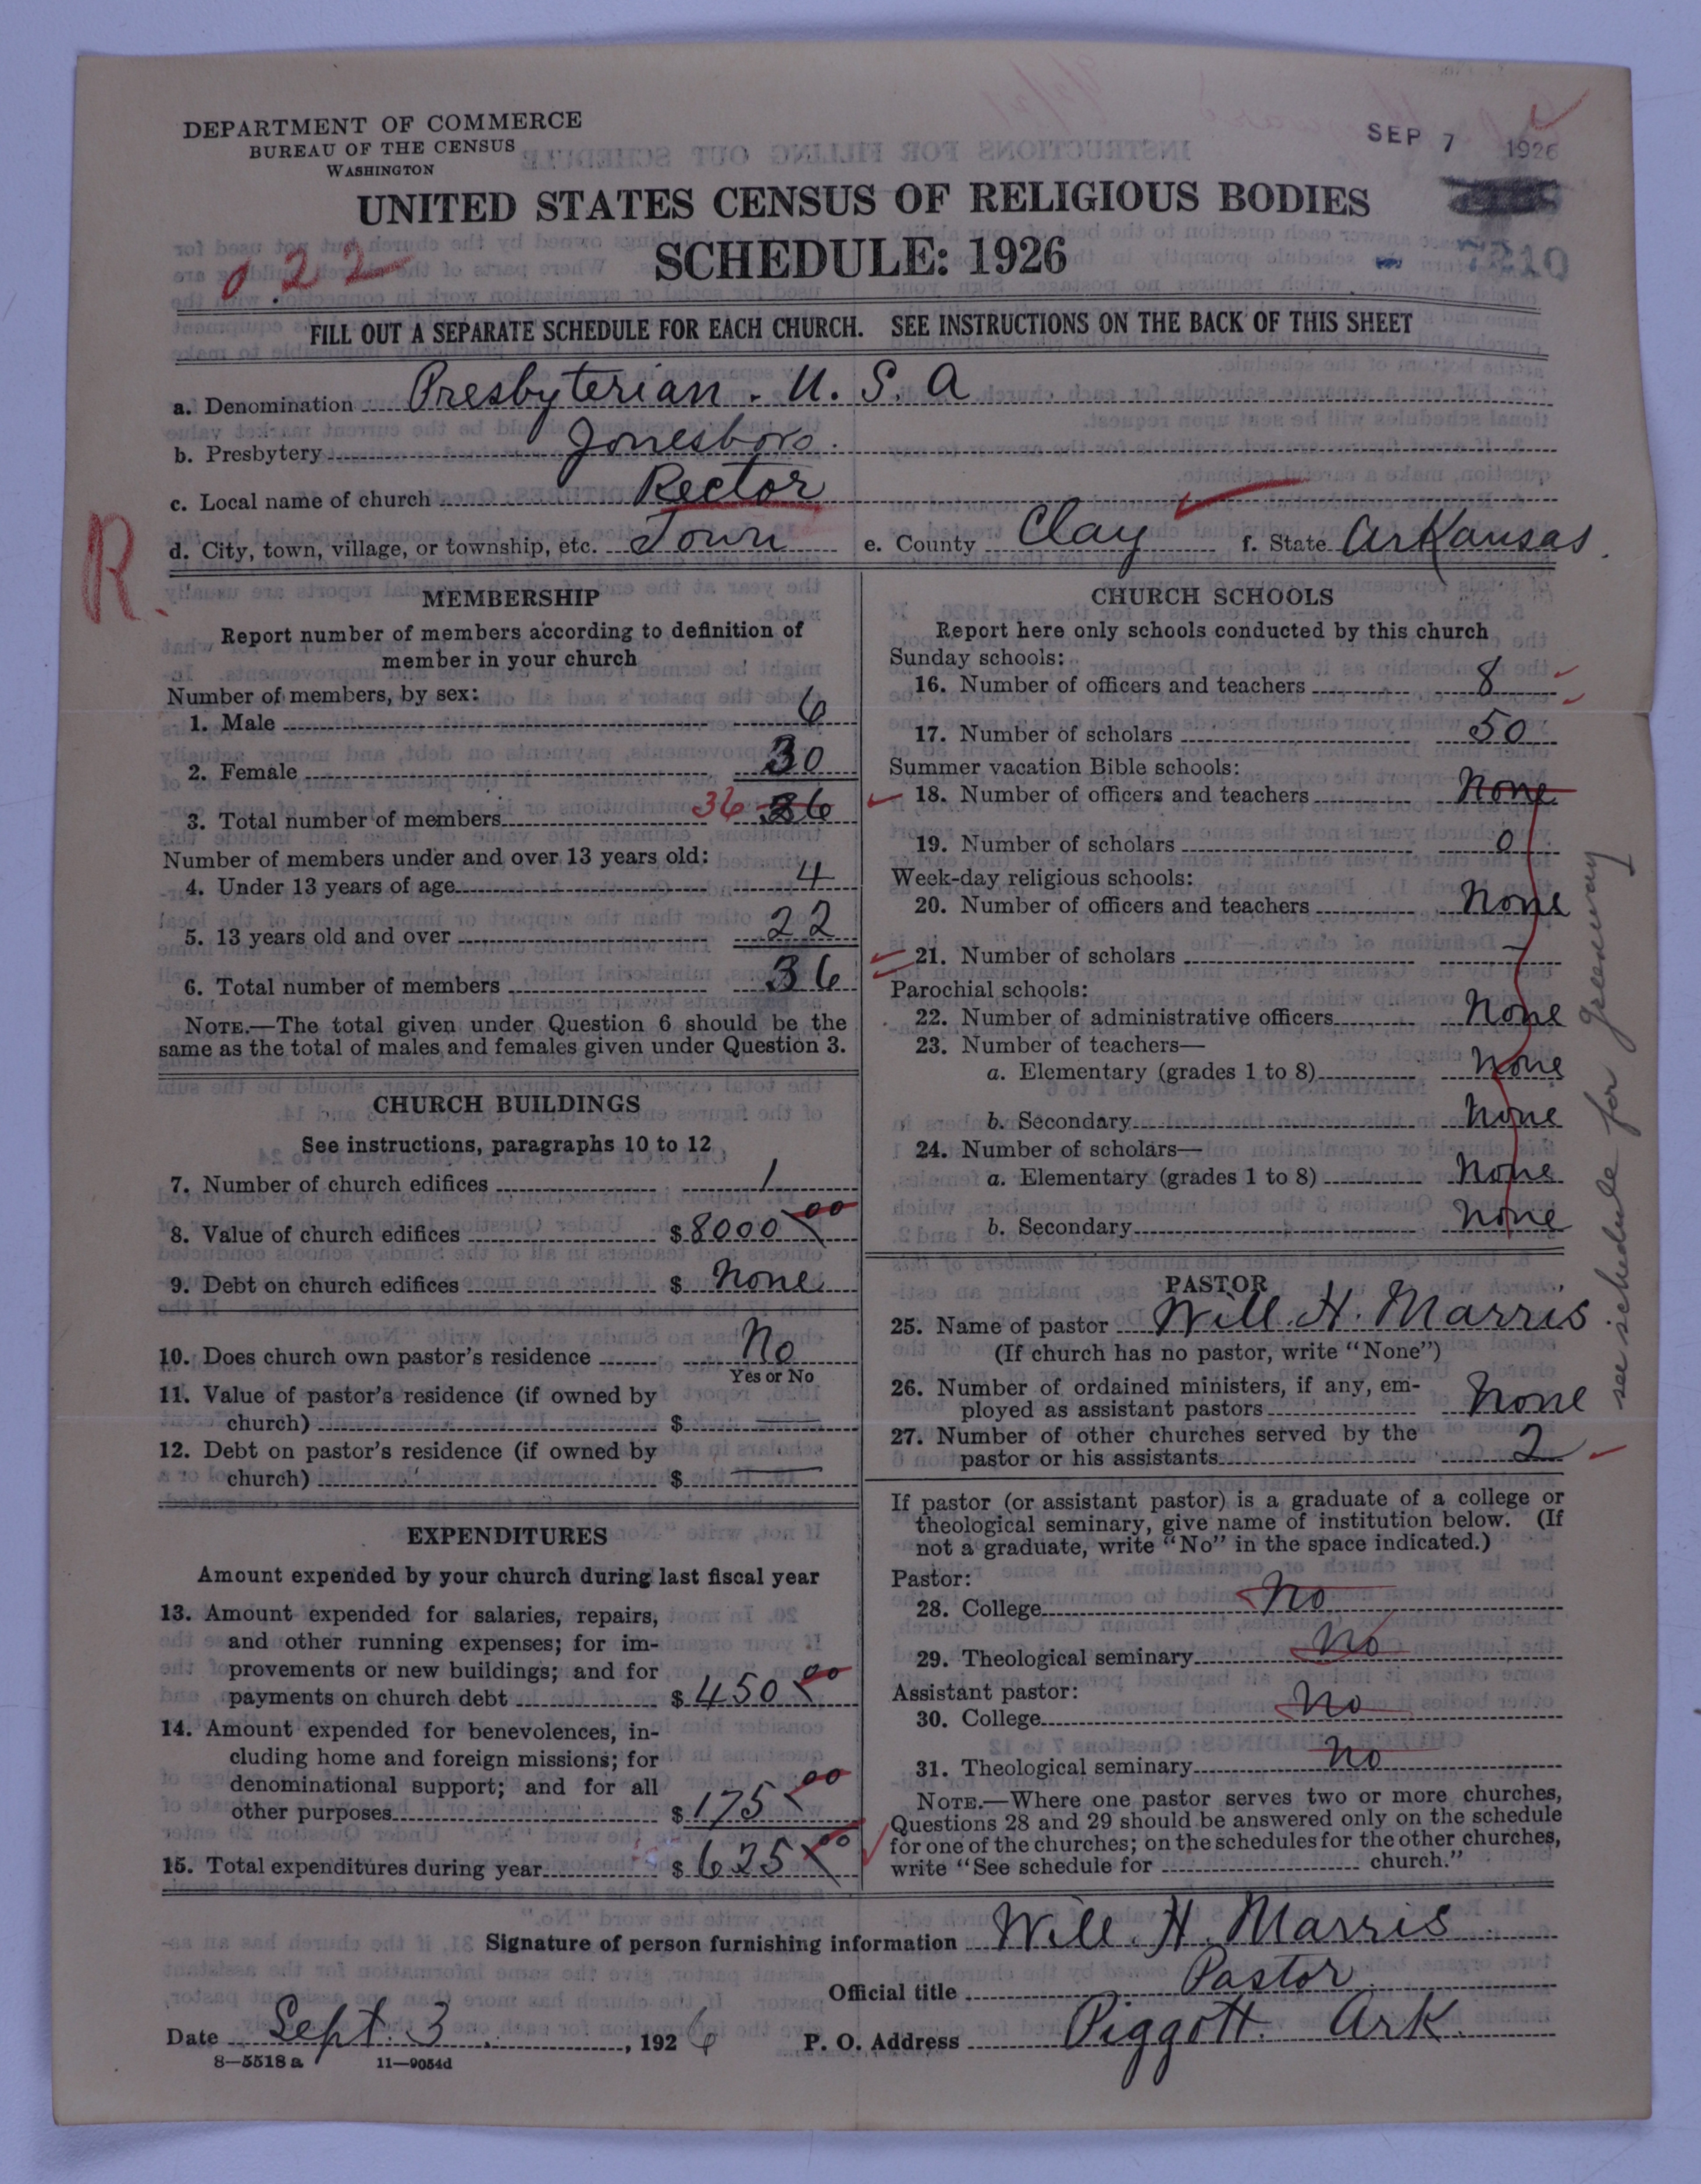 DEPARTMENT OF COMMERCE
BUREAU OF THE CENSUS
WASHINGTON
SEP 7 1926
UNITED STATES CENSUS OF RELIGIOUS BODIES
SCHEDULE: 1926
022
7210
FILL OUT A SEPARATE SCHEDULE FOR EACH CHURCH. SEE INSTRUCTIONS ON THE BACK OF THIS SHEET
a. Denomination Presbyterian. U. S. A
b. Presbytery Jonesboro.
c. Local name of church Rector
R.
d. City, town, village, or township, etc. Town e. County Clay f. State Arkansas.
MEMBERSHIP
Report number of members according to definition of
member in your church
Number of members, by sex:
1. Male 6
2. Female 30
3. Total number of members 36 36
Number of members under and over 13 years old:
4. Under 13 years of age 4
5. 13 years old and over 22
6. Total number of members 36
NOTE.—The total given under Question 6 should be the
same as the total of males and females given under Question 3.
CHURCH BUILDINGS
See instructions, paragraphs 10 to 12
7. Number of church edifices 1
8. Value of church edifices $8000 00
9. Debt on church edifices $ None
10. Does church own pastor's residence No
Yes or No
11. Value of pastor's residence (if owned by
church) $ —
12. Debt on pastor's residence (if owned by
church) $ —
EXPENDITURES
Amount expended by your church during last fiscal year
13. Amount expended for salaries, repairs,
and other running expenses; for im-
provements or new buildings; and for
payments on church debt $450 00
14. Amount expended for benevolences, in-
cluding home and foreign missions; for
denominational support; and for all
other purposes $175 00
15. Total expenditures during year $625 00
CHURCH SCHOOLS
Report here only schools conducted by this church
Sunday schools:
16. Number of officers and teachers 8
17. Number of scholars 50
Summer vacation Bible schools:
18. Number of officers and teachers None
19. Number of scholars 0
Week-day religious schools:
20. Number of officers and teachers None
21. Number of scholars —
Parochial schools:
22. Number of administrative officers None
23. Number of teachers—
a. Elementary (grades 1 to 8) None
b. Secondary None
24. Number of scholars—
a. Elementary (grades 1 to 8) None
b. Secondary None
PASTOR
25. Name of pastor Will. H. Marris
(If church has no pastor, write "None")
26. Number of ordained ministers, if any, em-
ployed as assistant pastors None
27. Number of other churches served by the
pastor or his assistants 2
If pastor (or assistant pastor) is a graduate of a college or
theological seminary, give name of institution below. (If
not a graduate, write "No" in the space indicated.)
Pastor:
28. College No
29. Theological seminary No
Assistant pastor:
30. College No
31. Theological seminary No
NOTE.—Where one pastor serves two or more churches,
Questions 28 and 29 should be answered only on the schedule
for one of the churches; on the schedules for the other churches,
write "See schedule for church."
see schedule for Greenway
Signature of person furnishing information Will. H. Marris
Official title Pastor
Date Sept. 3, 1926 P. O. Address Piggott Ark.
8—5518 a 11—9054d